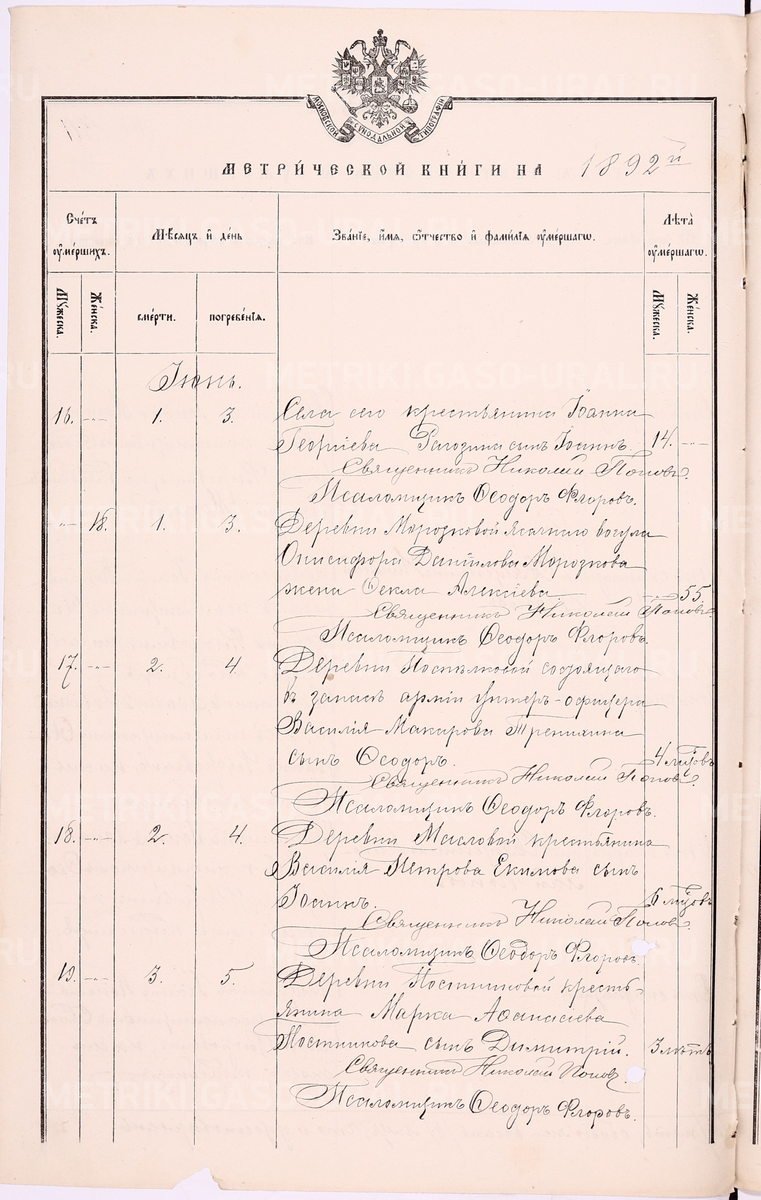 МОСКОВСКОЙ СѴНОДАЛЬНОЙ ТИПОГРАФІИ
МЕТРИ́ЧЕСКОЙ КНИ́ГИ НА 1892й
Сче́тъ оу҆ме́ршихъ.
Мѣ́сяцъ и҆ де́нь
Зва́ніе, и҆́мѧ, ѻ҆́тчество и҆ фами́лїѧ оу҆ме́ршагѡ.
Лѣ́та оу҆ме́ршагѡ.
Мꙋ́жеска.
Же́нска.
сме́рти.
погребе́нїѧ.
Мꙋ́жеска.
Же́нска.
Іюнь.
16. -„- 1. 3. Села сего крестьянина Іоанна
Георгіева Рагозина сынъ Іоаннъ. 14. -„-
Священникъ Николай Поповъ.
Псаломщикъ Ѳеодоръ Флоровъ.
-„- 18. 1. 3. Деревни Морозковой ясачнаго вогула
Онисифора Даніилова Морозкова
жена Ѳекла Алексіева. -„- 55.
Священникъ Николай Поповъ.
Псаломщикъ Ѳеодоръ Флоровъ.
17. -„- 2. 4. Деревни состоящаго
въ запасѣ арміи унтеръ-офицера
Василія Макарова
сынъ Ѳеодоръ. 4 мѣ
Священникъ Николай Поповъ.
Псаломщикъ Ѳеодоръ Флоровъ.
18. -„- 2. 4. Деревни Масловой крестьянина
Василія Петрова Екимова сынъ
Іоаннъ. 6 мѣ
Священникъ Николай Поповъ.
Псаломщикъ Ѳеодоръ Флоровъ.
19. -„- 3. 5. Деревни Постниковой кресть-
янина Марка Аѳанасіева
Постникова сынъ Димитрій. 3 лѣтъ
Священникъ Николай Поповъ.
Псаломщикъ Ѳеодоръ Флоровъ.
METRIKI.GASO-URAL.RU